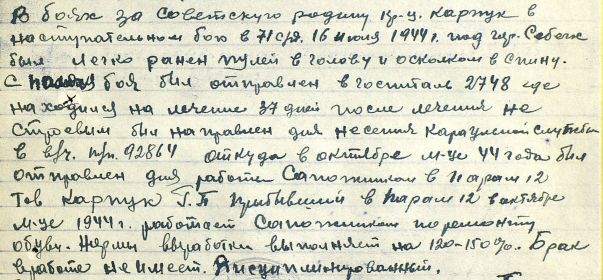 В боях за советскую родину кр-ц. Карпук в
наступательном бою в 71 с/д. 16 июля 1944 г. под гор. Себеж
был легко ранен пулей в голову и осколком в спину.
С поля боя был отправлен в госпиталь 2748 где
находился на лечение 37 дней после лечения не
строевым был направлен для несения караульной службы
в в/ч. п/п. 92864 откуда в октябре м-це 44 года был
отправлен для работы сапожником в ПАРМ 12
Тов Карпук Г.П прибывший в ПАРМ 12 в октябре
м-це 1944 г. работает сапожником по ремонту
обуви. Нормы выработки выполняет на 120-150%. Брак
в работе не имеет. Дисциплинированный.